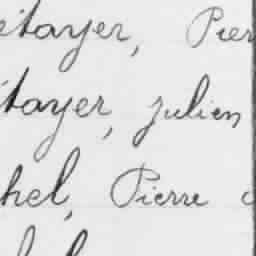 étayer, Pier
étayer, julien
hel, Pierre